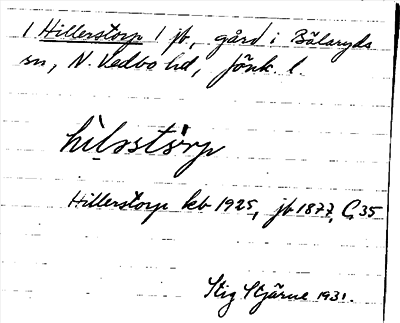 1 Hillerstorp 1 jb, gård i Bälaryds
sn, N. Vedbo hd, Jönk. l.
hìl̥əstórp
Hillerstorp kb 1925, jb 1877, C, 35
Stig Stjärne 1931.